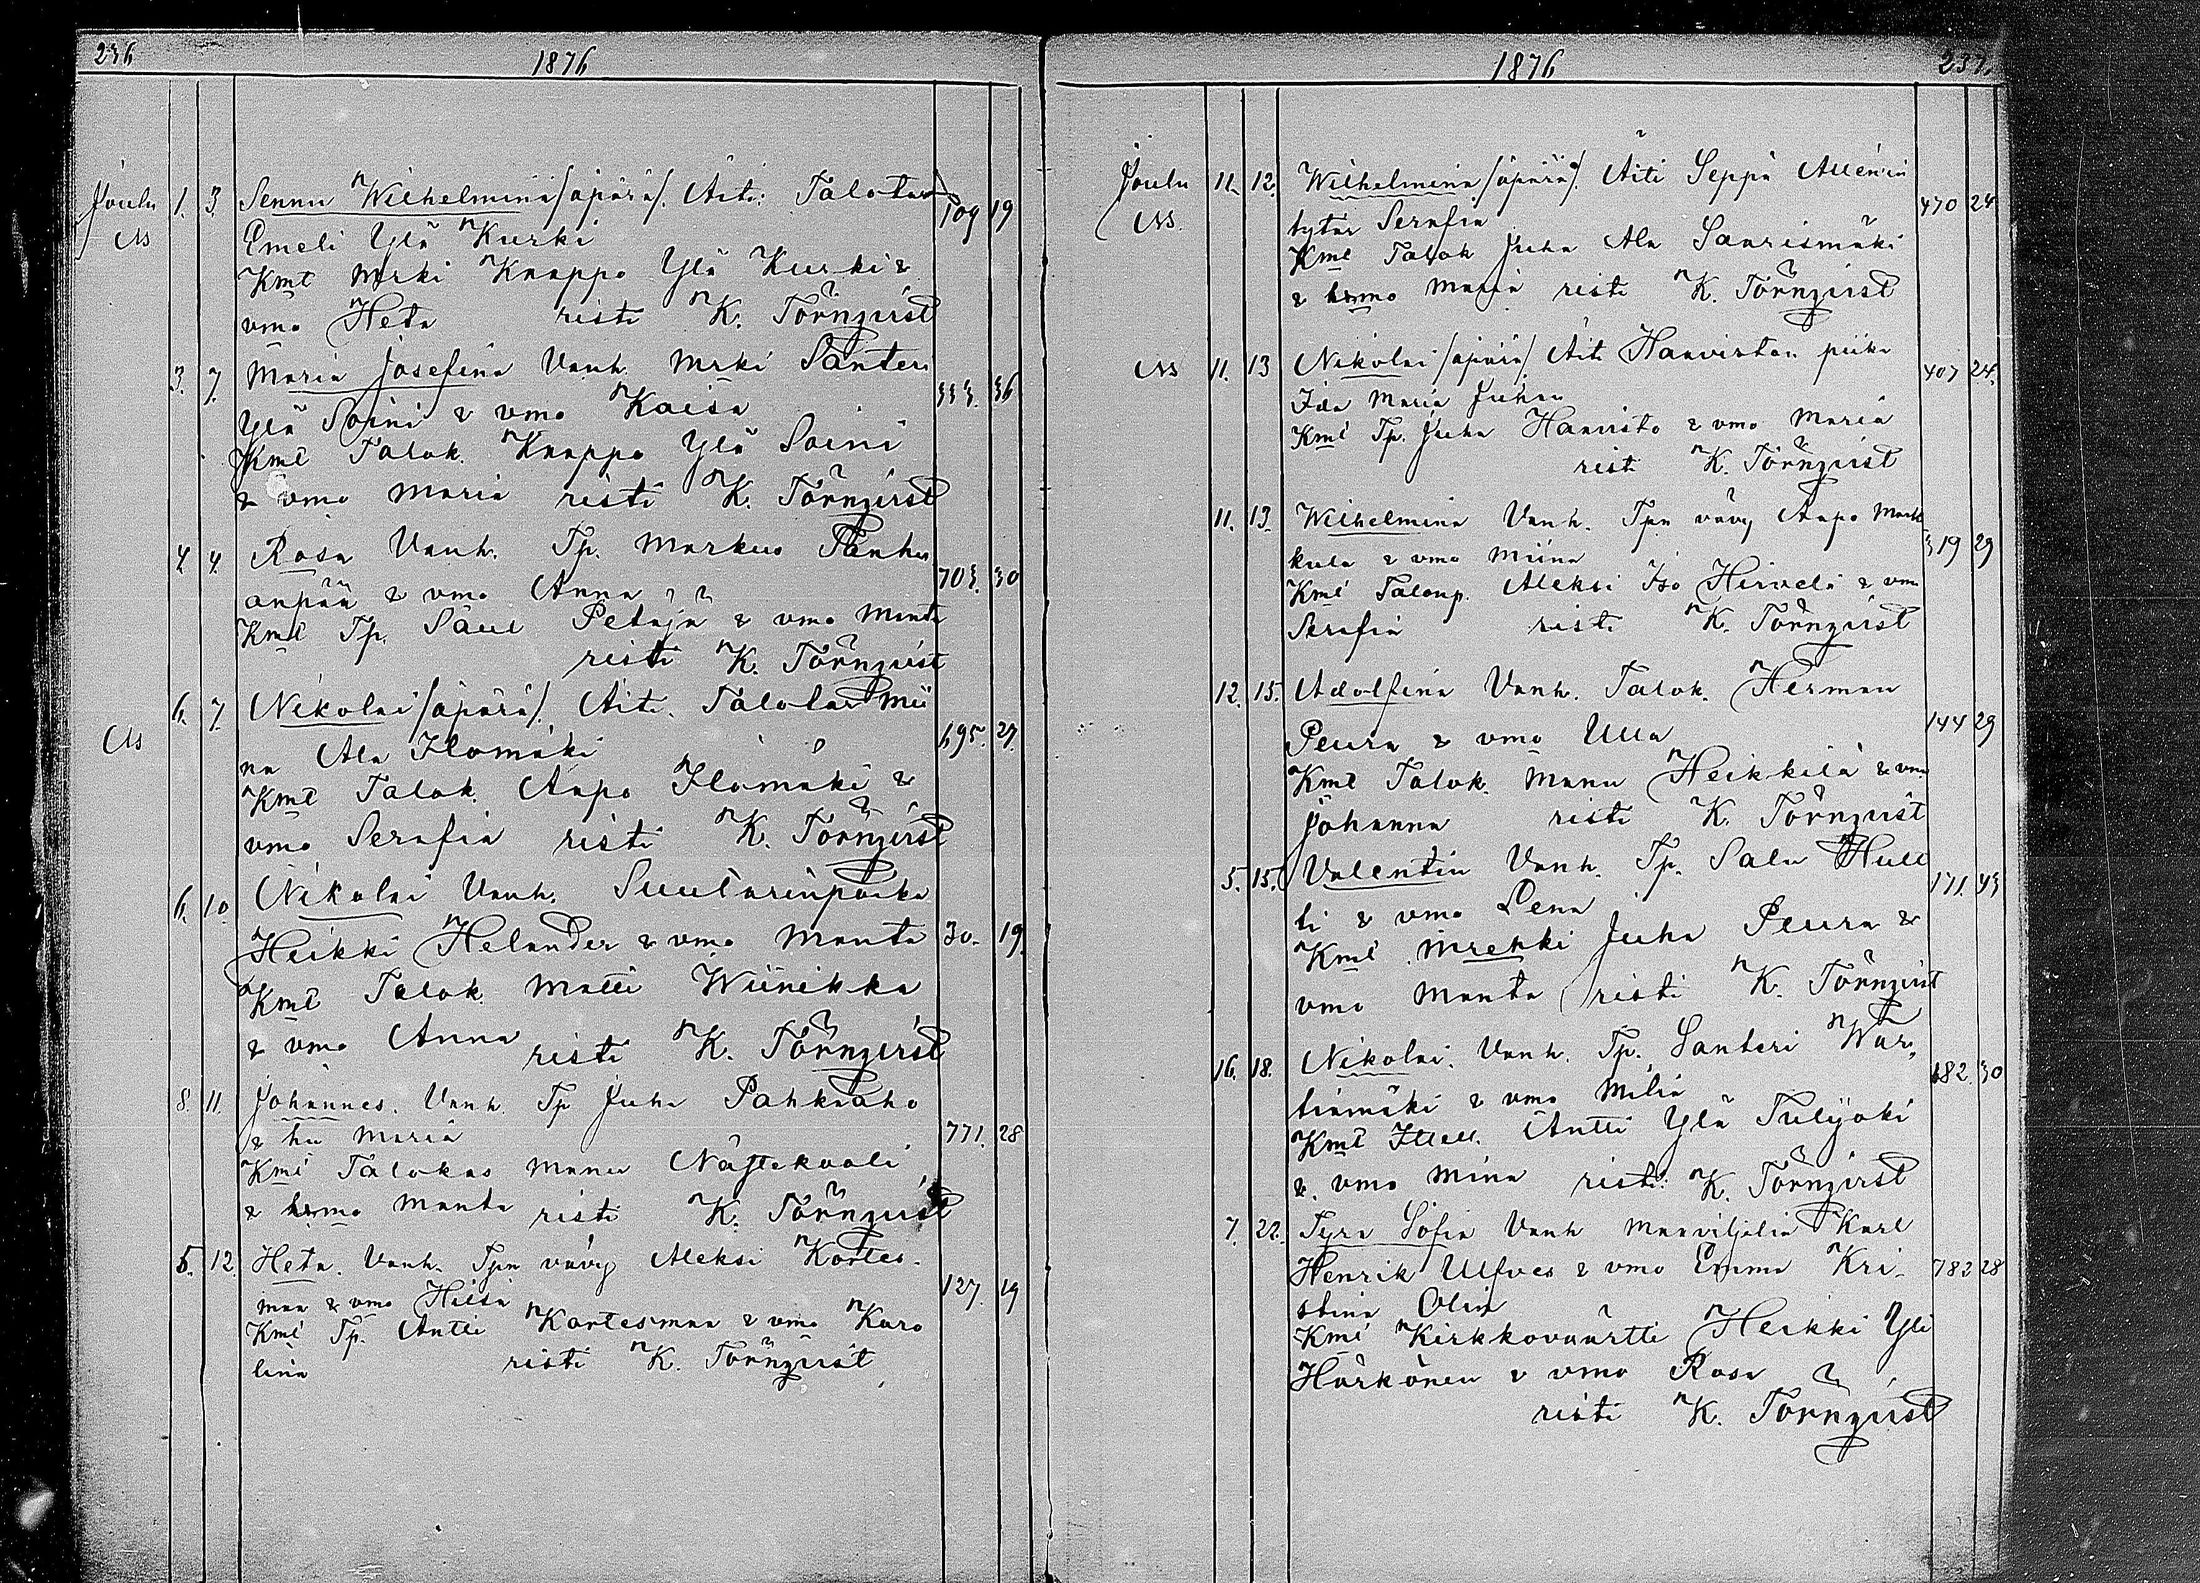 236 1876
Joulu 1. 3. Sennu Wilhelmina /äpärä/. Äiti: Talotar 109 19
Emeli Ylä Kurki
Kml Mrki Knappo Ylä Kurki &
vmo Heta risti K. Törnqvist
3. 7. Maria Josefina Vanh. Mrki Santeri 333. 36
Ylä Soini & vmo Kaisa
Kml Talok. Knappo Ylä Soini
& vmo Maria risti K. Törnqvist
4. 4. Rosa Vanh. Tp. Markus Panhu 703. 30
anpää & vmo Anna
Kml Tp. Saul Petäjä & vmo Manta
risti K. Törnqvist
6. 7. Nikolai /äpärä/. Äiti. Talotar Mii 695. 27.
na Ala Ilomäki
Kml Talok. Aapo Ilomäki &
vmo Serafia risti K. Törnqvist
6. 10. Nikolai Vanh. Suutarinpoika
Heikki Helander & vmo Manta 30. 19.
Kml Talok. Matti Wiinikka
& vmo Anna risti K. Törnqvist
8. 11. Johannes. Vanh. Tp Juha Pahkaaho
& hu Maria 771. 28
Kml Talokas Manu
& hrmo Manta risti K. Törnqvist
5. 12. Heta. Vanh. Tpn vävy Aleksi Kortes-
maa & vmo Hilta 127. 19
Kml Tp. Antti Kortesmaa & vmo Karo
lina risti K. Törnqvist
1876 237.
Joulu 11. 12. Wilhelmina /äpärä/. Äiti Seppä
tytär Serafia 470 24
Kml Talok Juha Ala Saarismäki
& hrmo Maria risti K. Törnqvist
11. 13 Nikolai /äpärä/. Äiti Haaviston piika 407 24.
Ida Maria Juhan
Kml Tp. Juha Haavisto & vmo Maria
risti K. Törnqvist
11. 13. Wilhelmina Vanh. Tpn vävy Aapo Mark
kula & vmo Miina 319 29
Kml Talonp. Aleksi Iso Hirvelä & vmo
Serafia risti K. Törnqvist
12. 15. Adolfina Vanh. Talok. Herman
Peura & vmo Ulla 144 29
Kml Talok. Manu Heikkilä & vmo
Johanna risti K. Törnqvist
5. 15. Valentin Vanh. Tp. Salu Hull 171. 43
ti & vmo Lena
Kml Mrehki Juha Peura &
vmo Manta risti K. Törnqvist
16. 18. Nikolai. Vanh. Tp. Santeri War,
tiamäki & vmo Milia 682. 30
Kml Itsell. Antti Ylä Tulijoki
& vmo Mina risti: K. Törnqvist
7. 22. Tyra Sofia Vanh Maanviljeliä Karl
Henrik Ulfves & vmo Emma Kri- 782 28
stina Olin
Kml Kirkkovaartti Heikki Yli
Härkönen & vmo Rosa
risti K. Törnqvist